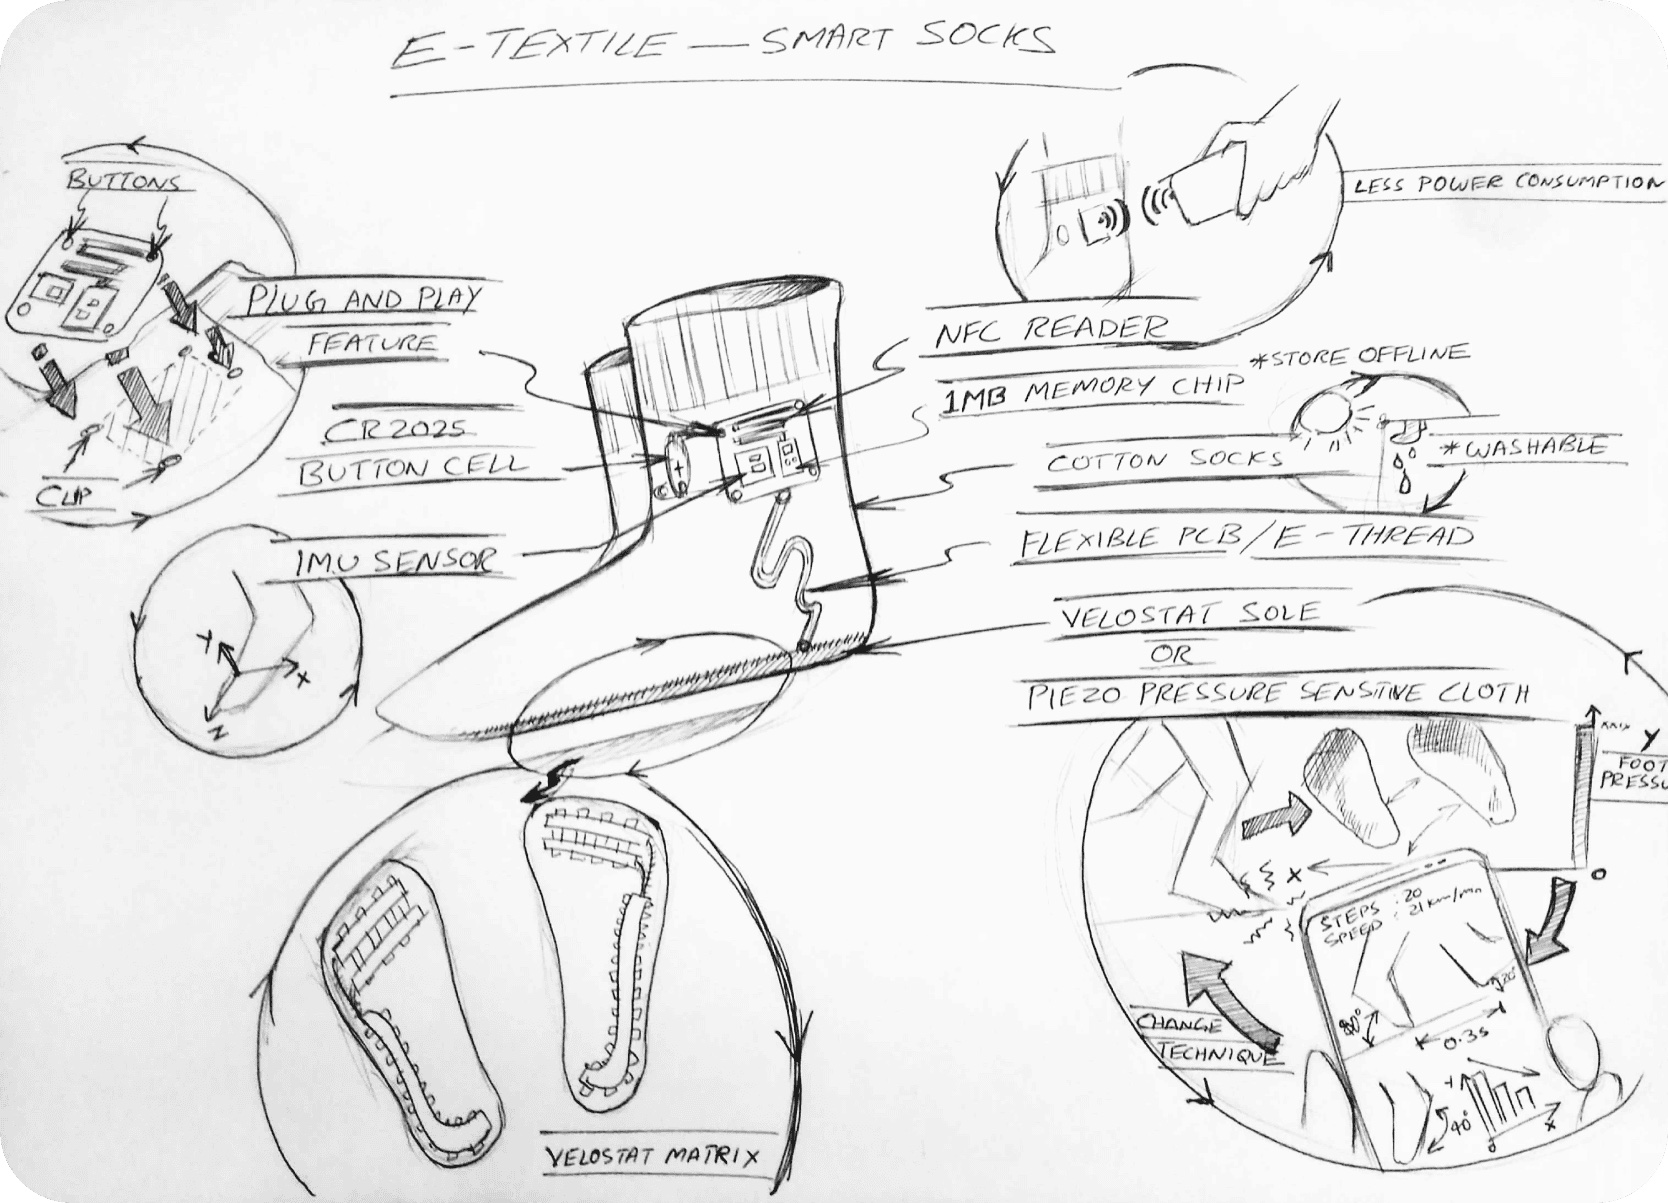 E-TEXTILE — SMART SOCKS
BUTTONS
PLUG AND PLAY
FEATURE
CLIP
CR2025
BUTTON CELL
IMU SENSOR
Y
X
Z
LESS POWER CONSUMPTION
NFC READER
*STORE OFFLINE
1MB MEMORY CHIP
COTTON SOCKS
*WASHABLE
FLEXIBLE PCB/E-THREAD
VELOSTAT SOLE
OR
PIEZO PRESSURE SENSITIVE CLOTH
Y
FOOT
PRESSU
X
O
STEPS : 20
SPEED : 21km/mn
20°
80°
0.3s
CHANGE
TECHNIQUE
40°
Y
X
0
VELOSTAT MATRIX
+